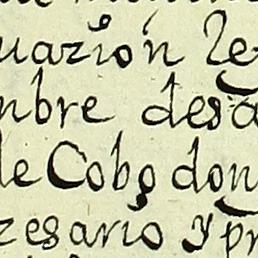 uazión le
nbre desa
de Cobo don
zesario y pr